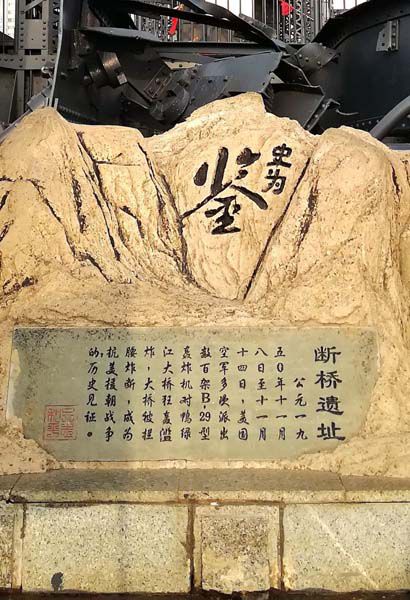 史为
鉴
断桥遗址
公元一九
五0年十一月
八日至十一月
十四日,美国
空军多次派出
数百架B.29型
轰炸机对鸭绿
江大桥狂轰滥
炸,大桥被拦
腰炸断,成为
抗美援朝战争
的历史见证。